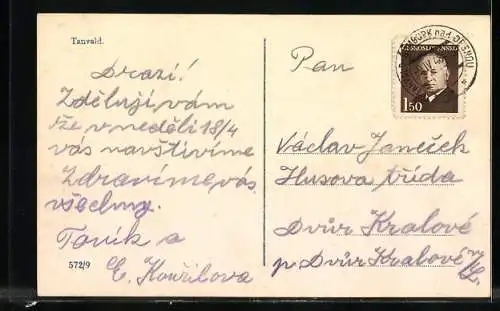 Tanvald.
Drazí!
Zděluji, vám
že v neděli 18/4
vás navštívíme
Zdravíme, vás
všechny.
Toník a
E. Kouřilova
572/9
Pan
ČESKOSLOVENSKO
1.50
NAD
Václav Janeček
Husova třída
Dvůr Kralové
p. Dvůr Kralové n/L.